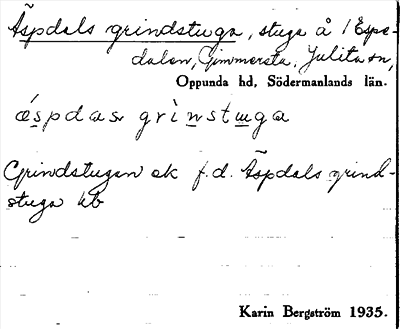 Äspdals grindstuga, stuga å 1 Espe-
dalen, Gimmersta, Julita sn,
Oppunda hd, Södermanlands län.
ǽspdas grìnstuga
Grindstugan ek f.d. Äspdals grind-
stuga kb
Karin Bergström 1935.